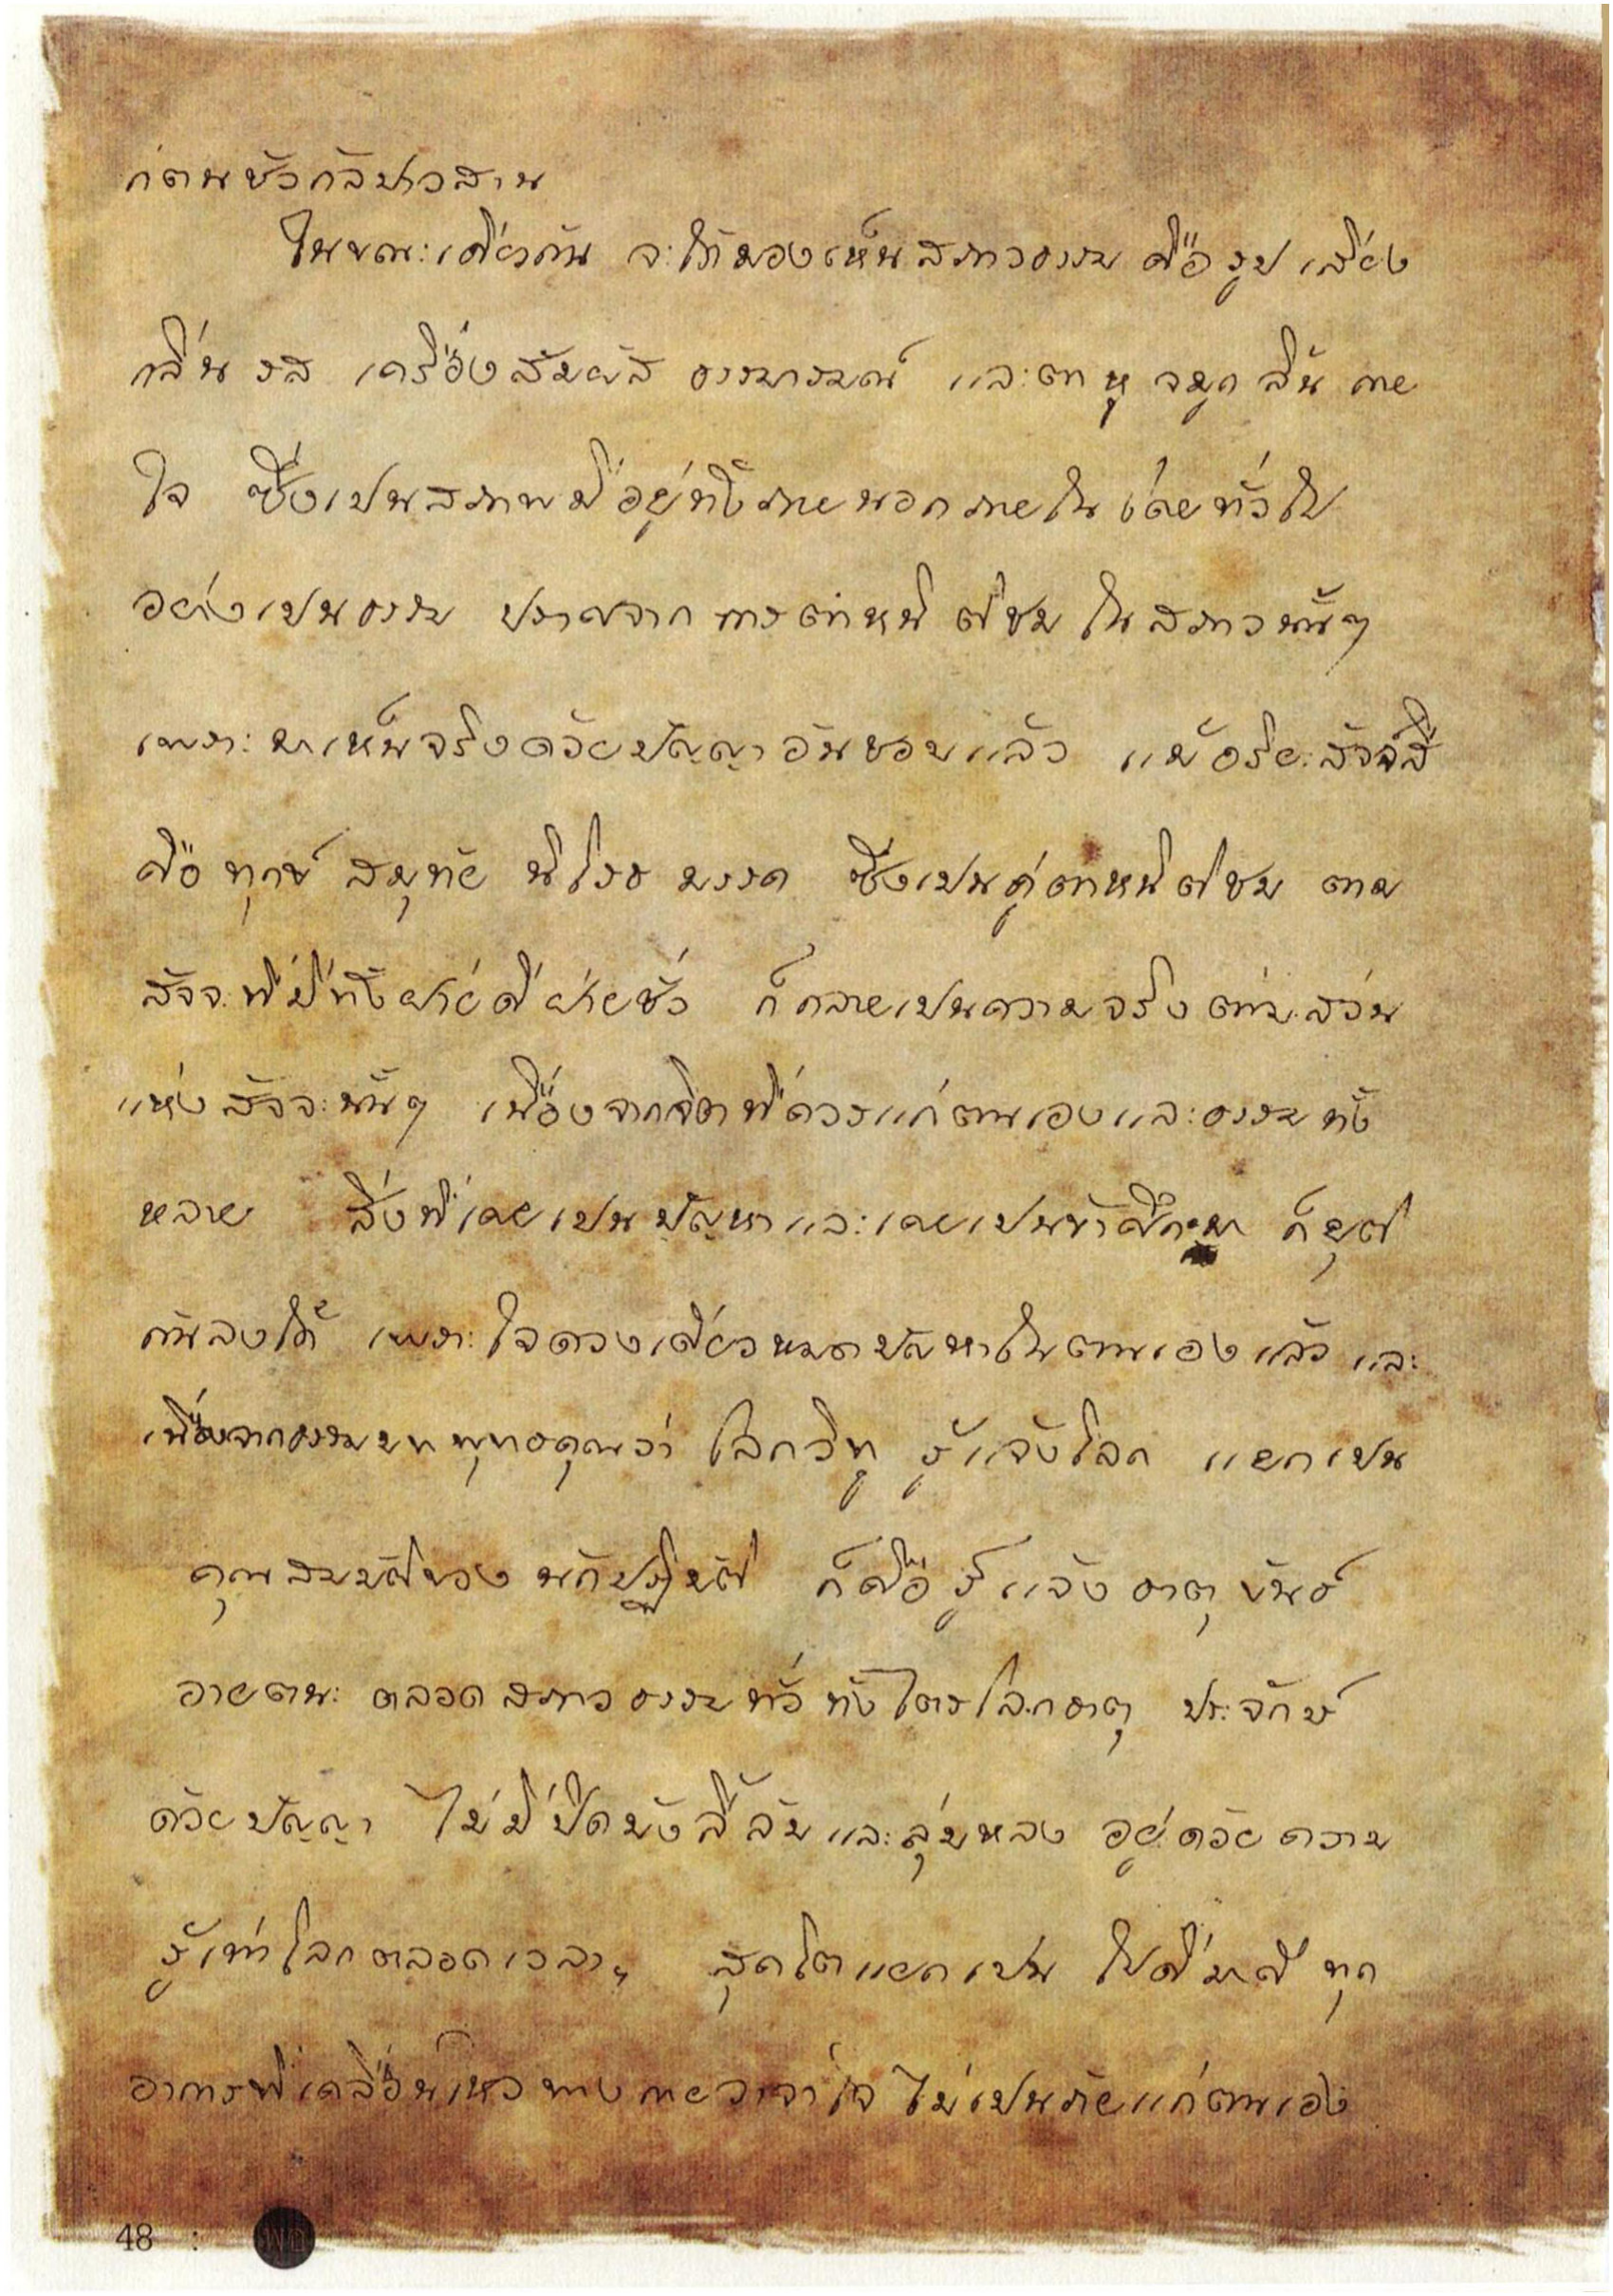 ก่ตนชั่วกัลปาวสาน
ในขณะเดียวกัน จะได้มองเห็นสภาวธรรม คือ รูป เสียง
กลิ่น รส เครื่องสัมผัส ธรรมารมณ์ และตา หู จมูก ลิ้น กาย
ใจ ซึ่งเปนสภาพมีอยู่ทั้งภายนอกภายในโดยทั่วไป
อย่างเปนธรรม ปราศจาก การตำหนิ ติชม ในสภาวนั้นๆ
เพราะมาเห็นจริงด้วยปัญญาอันชอบแล้ว แม้อริยะสัจจ์สี่
คือ ทุกข์ สมุทัย นิโรธ มรรค ซึ่งเปนคู่ตำหนิติชม ตาม
สัจจะที่มีทั้งฝ่ายดีฝ่ายชั่ว ก็กลายเปนความจริงตามส่วน
แห่งสัจจะนั้นๆ เนื่องจากจิตที่ควรแก่ตนเองและธรรมทั้ง
หลาย สิ่งที่เคยเปนปัญหาและเคยเปนข้าศึกมา ก็ยุติ
กันลงได้ เพราะใจดวงเดียวหมดปัญหาในตนเองแล้ว และ
เนื่องจากธรรมบทพุทธคุณว่า โลกวิทู รู้แจ้งโลก แยกเปน
คุณสมบัติของนักปฏิบัติ ก็คือ รู้แจ้ง ธาตุ ขันธ์
อายตนะ ตลอดสภาวธรรมทั่วทั้งไตรโลกธาตุ ประจักษ์
ด้วยปัญญา ไม่มีปิดบังลี้ลับและลุ่มหลง อยู่ด้วยความ
รู้เท่าโลกตลอดเวลา, สุคโตแยกเปน ไปดีมาดี ทุก
อาการที่เคลื่อนไหวทางกายวาจาใจ ไม่เปนภัยแก่ตนเอง
48 :